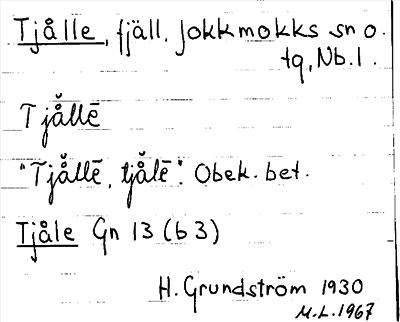 Tjålle, fjäll, Jokkmokks sn o.
tq, Nb. l.
Tjå̆llē
"Tjå̆llē, tjå̆lē". Obek. bet.
Tjåle Gn 13 (b3)
H. Grundström 1930
M.L. 1967